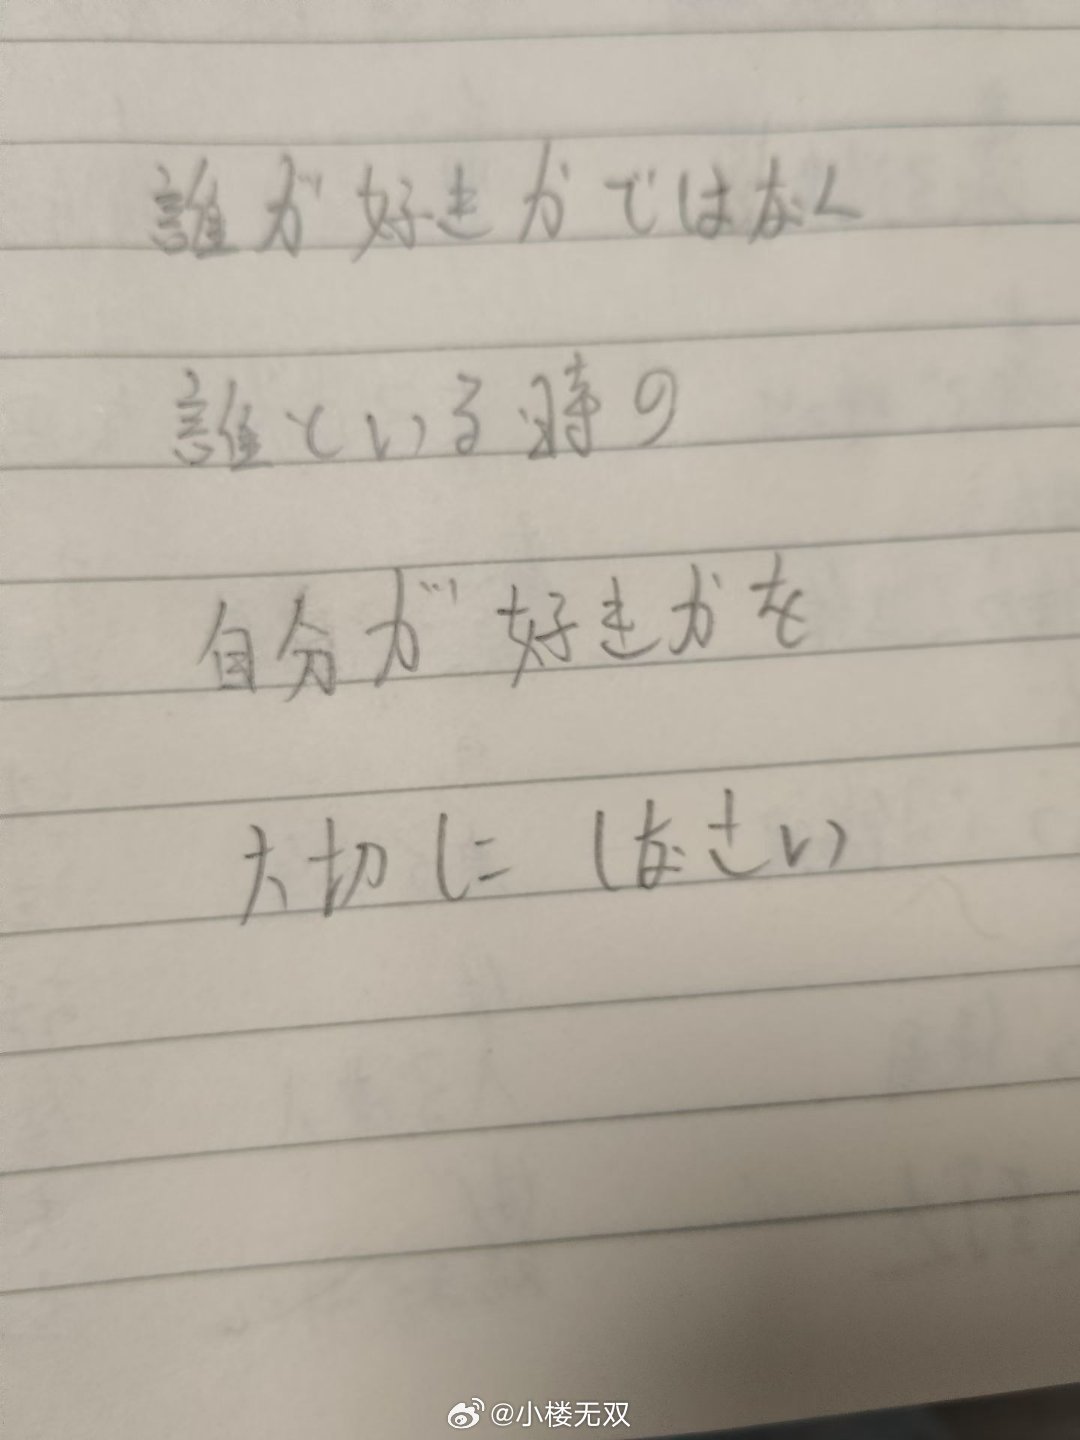 誰が好きかではなく
誰といる時の
自分が好きかを
大切にしなさい
@小楼无双